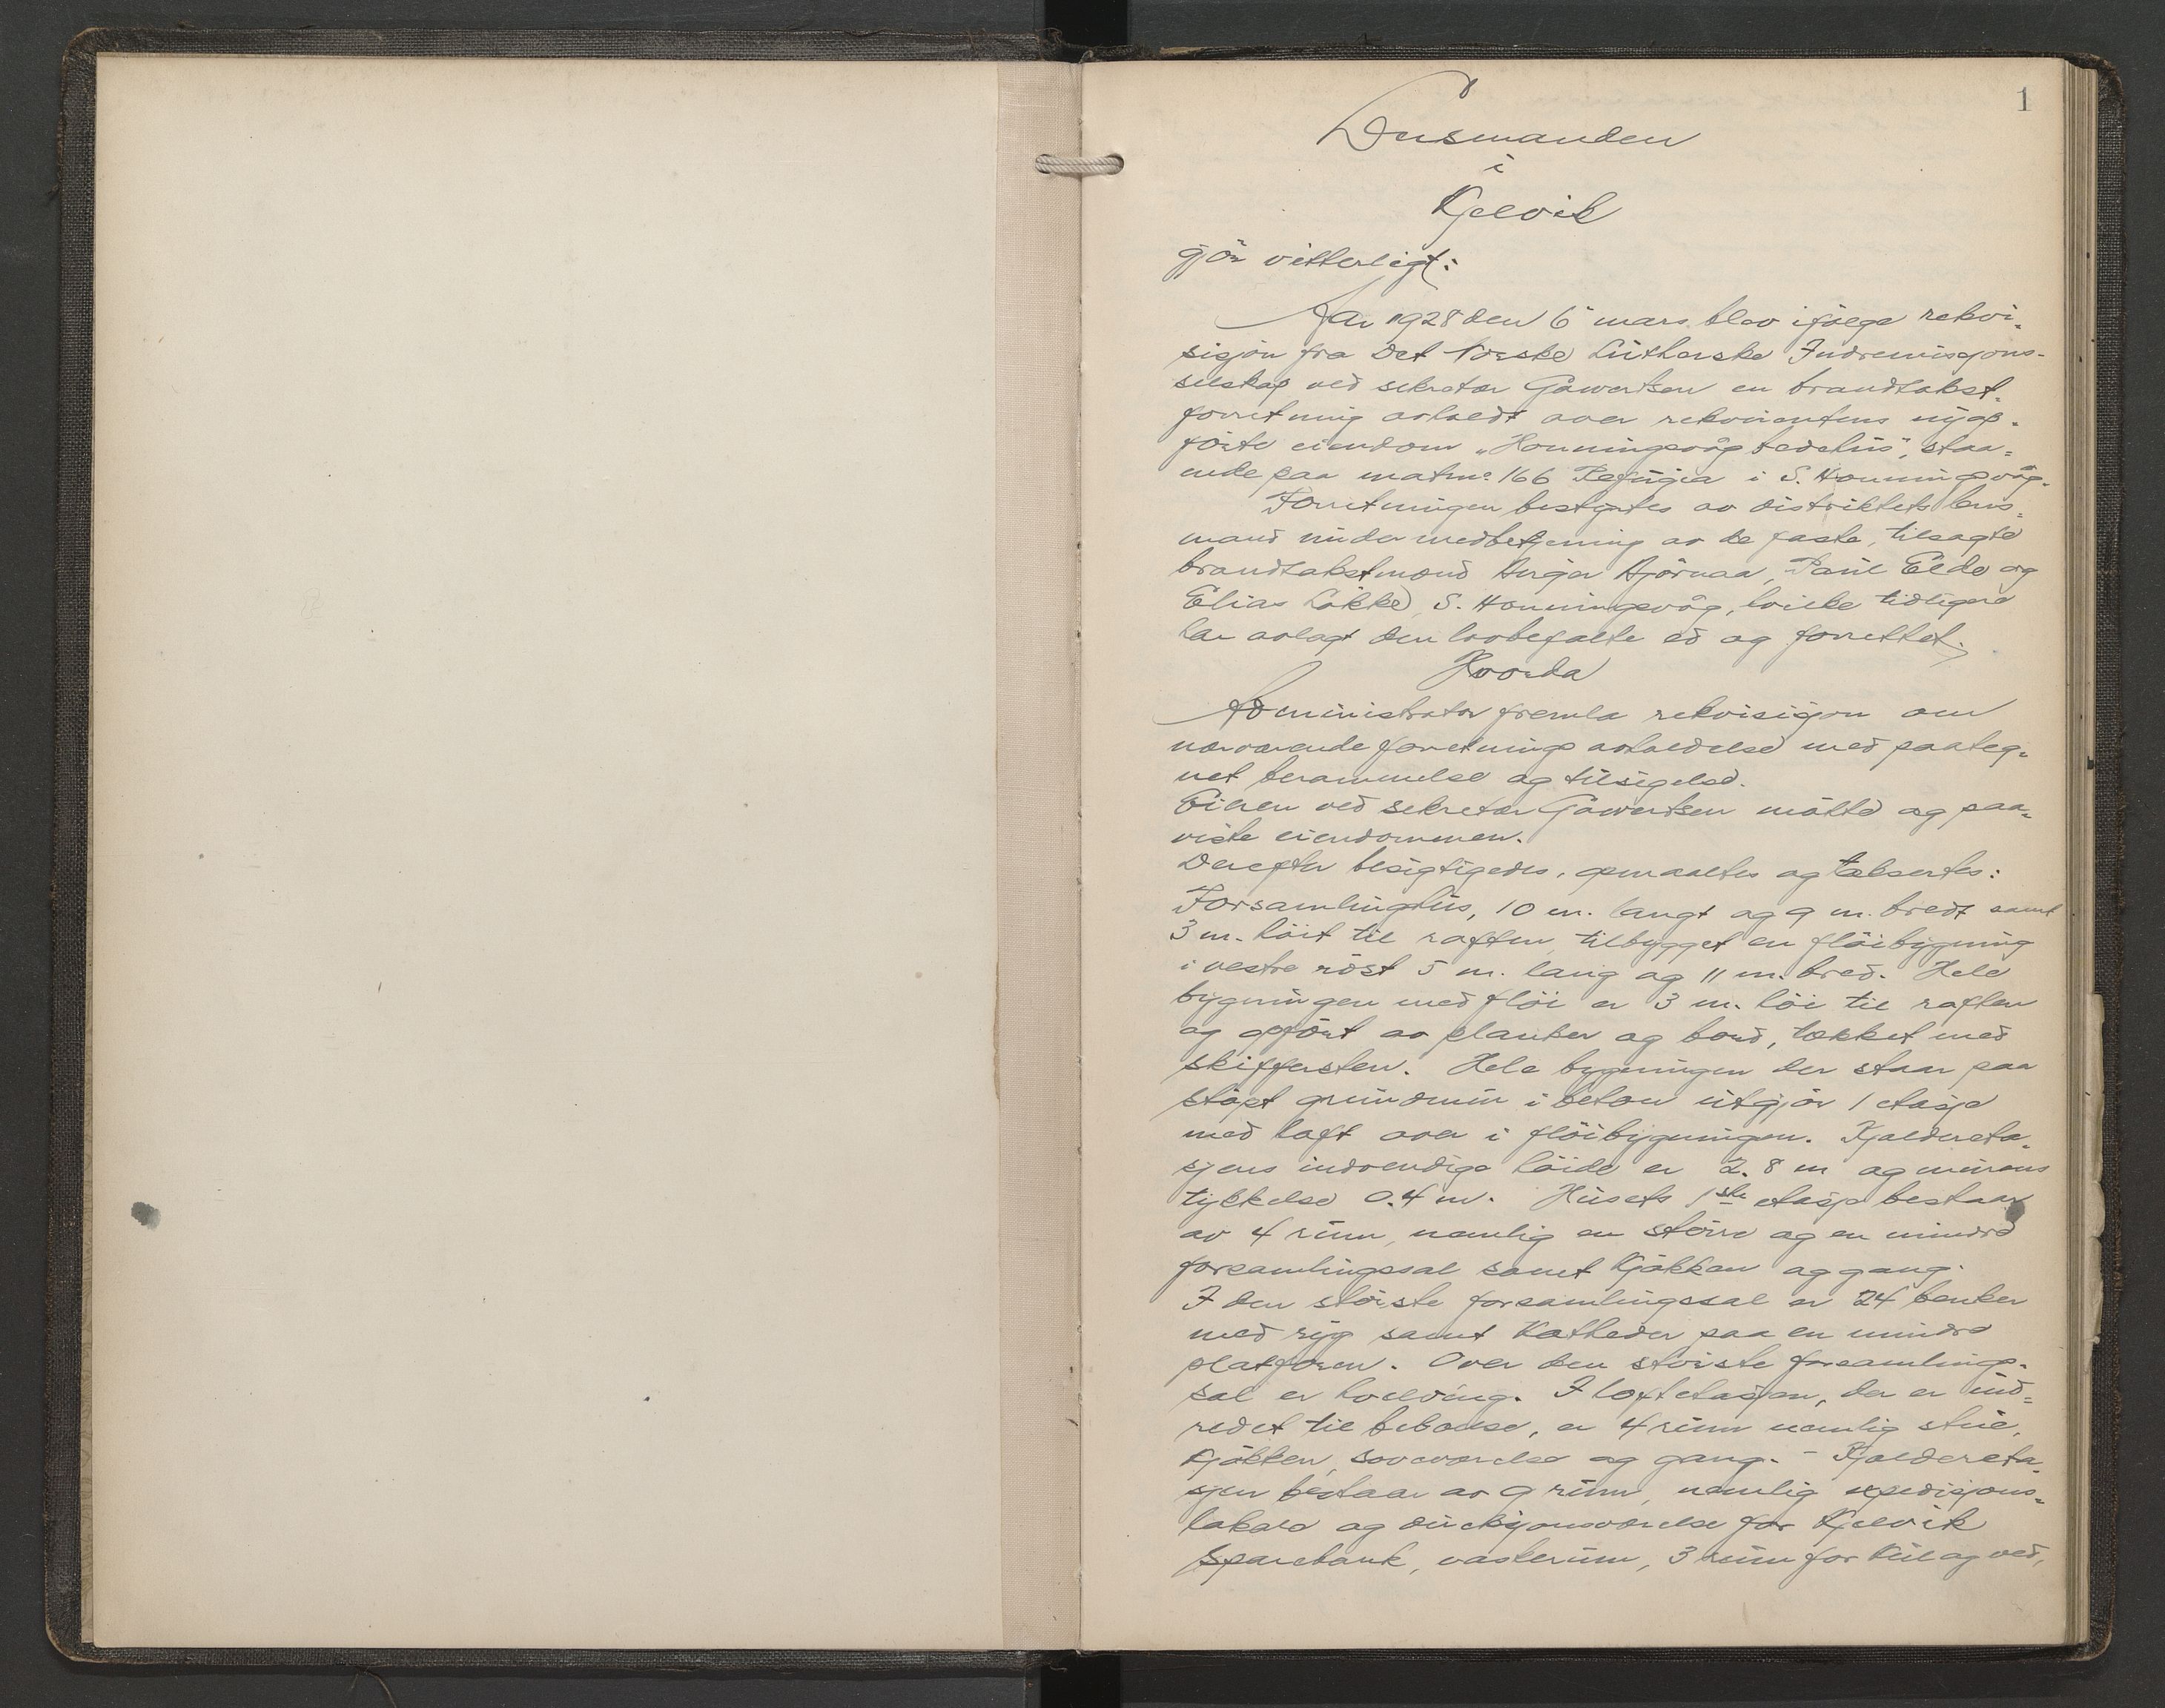 1
Lensmanden
i
Kjelvik
gjör vitterligt:
Aar 1928 den 6 mars blev ifölge rekvi-
sisjon fra Det Norske Lutherske Indremisjons-
selskap ved sekretær Gawertsen en brandtakst-
forretning avholdt over rekvirentens nyop-
förte eiendom "Honningsvåg bedehus", staa-
ende paa matrnr 166 Refugia i S. Honningsvåg.
Forretningen bestyrtes av distriktets lens-
mand under medbetjening av de faste, tilsagte
brandtakstmænd Björnaa, Paul Elde og
Elias Lökke, S. Honningsvåg, hvilke tidligere
har avlagt den lovbefalte ed og forrettet.
Hvorda
Administrator fremla rekvisisjon om
nærværende forretnings avholdelse med paateg-
net berammelse og tilsigelse.
Eieren ved sekretær Gawertsen mötte og paa-
viste eiendommen.
Derefter besigtigedes, opmaaltes og takserte:
Forsamlingshus, 10 m. langt og 9 m. bredt samt
3 m. höit til raften, tilbygget en flöibygning
i vestre röst 5 m. lang og 11 m. bred. Hele
bygningen med flöi er 3 m. höi til raften
og opfört av planker og bord, tækket med
skiffersten. Hele bygningen der staar paa
stöpt grundmur i beton utgjör 1 etasje
med loft over i flöibygningen. Kjeldereta-
sjens indvendige höide er 2.8 m og murens
tykkelse 0.4 m. Husets 1ste etasje bestaar
av 4 rum, nemlig en större og en mindre
forsamlingssal samt kjökken og gang.
I den störste forsamlingssal er 24 benker
med ryg samt katheder paa en mindre
platform. Over den störste forsamlings-
sal er hvelving. I loftetasjen, der er ind-
redet til beboelse, er 4 rum nemlig stue,
kjökken, soveværelse og gang. - Kjeldereta-
sjen bestaar av 9 rum, nemlig expedisjons-
lokale og direksjonsværelse for Kjelvik
Sparebank, vaskerum, 3 rum for kul og ved,